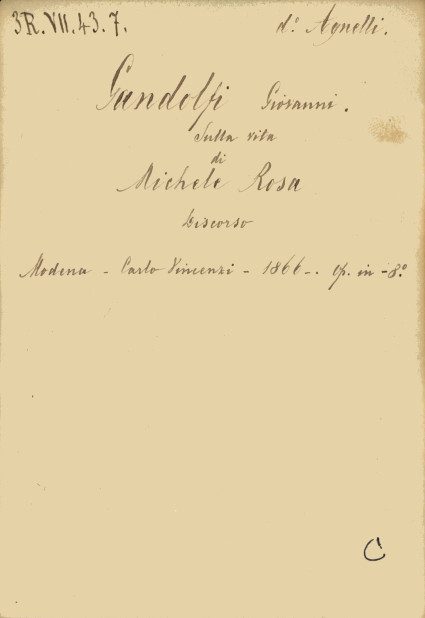 3R.VII.43.7.
d.º Agnelli.
Gandolfi Giovanni.
Sulla vita
di
Michele Rosa
Discorso
Modena - Carlo Vincenzi - 1866 -. op. in -8.º
C